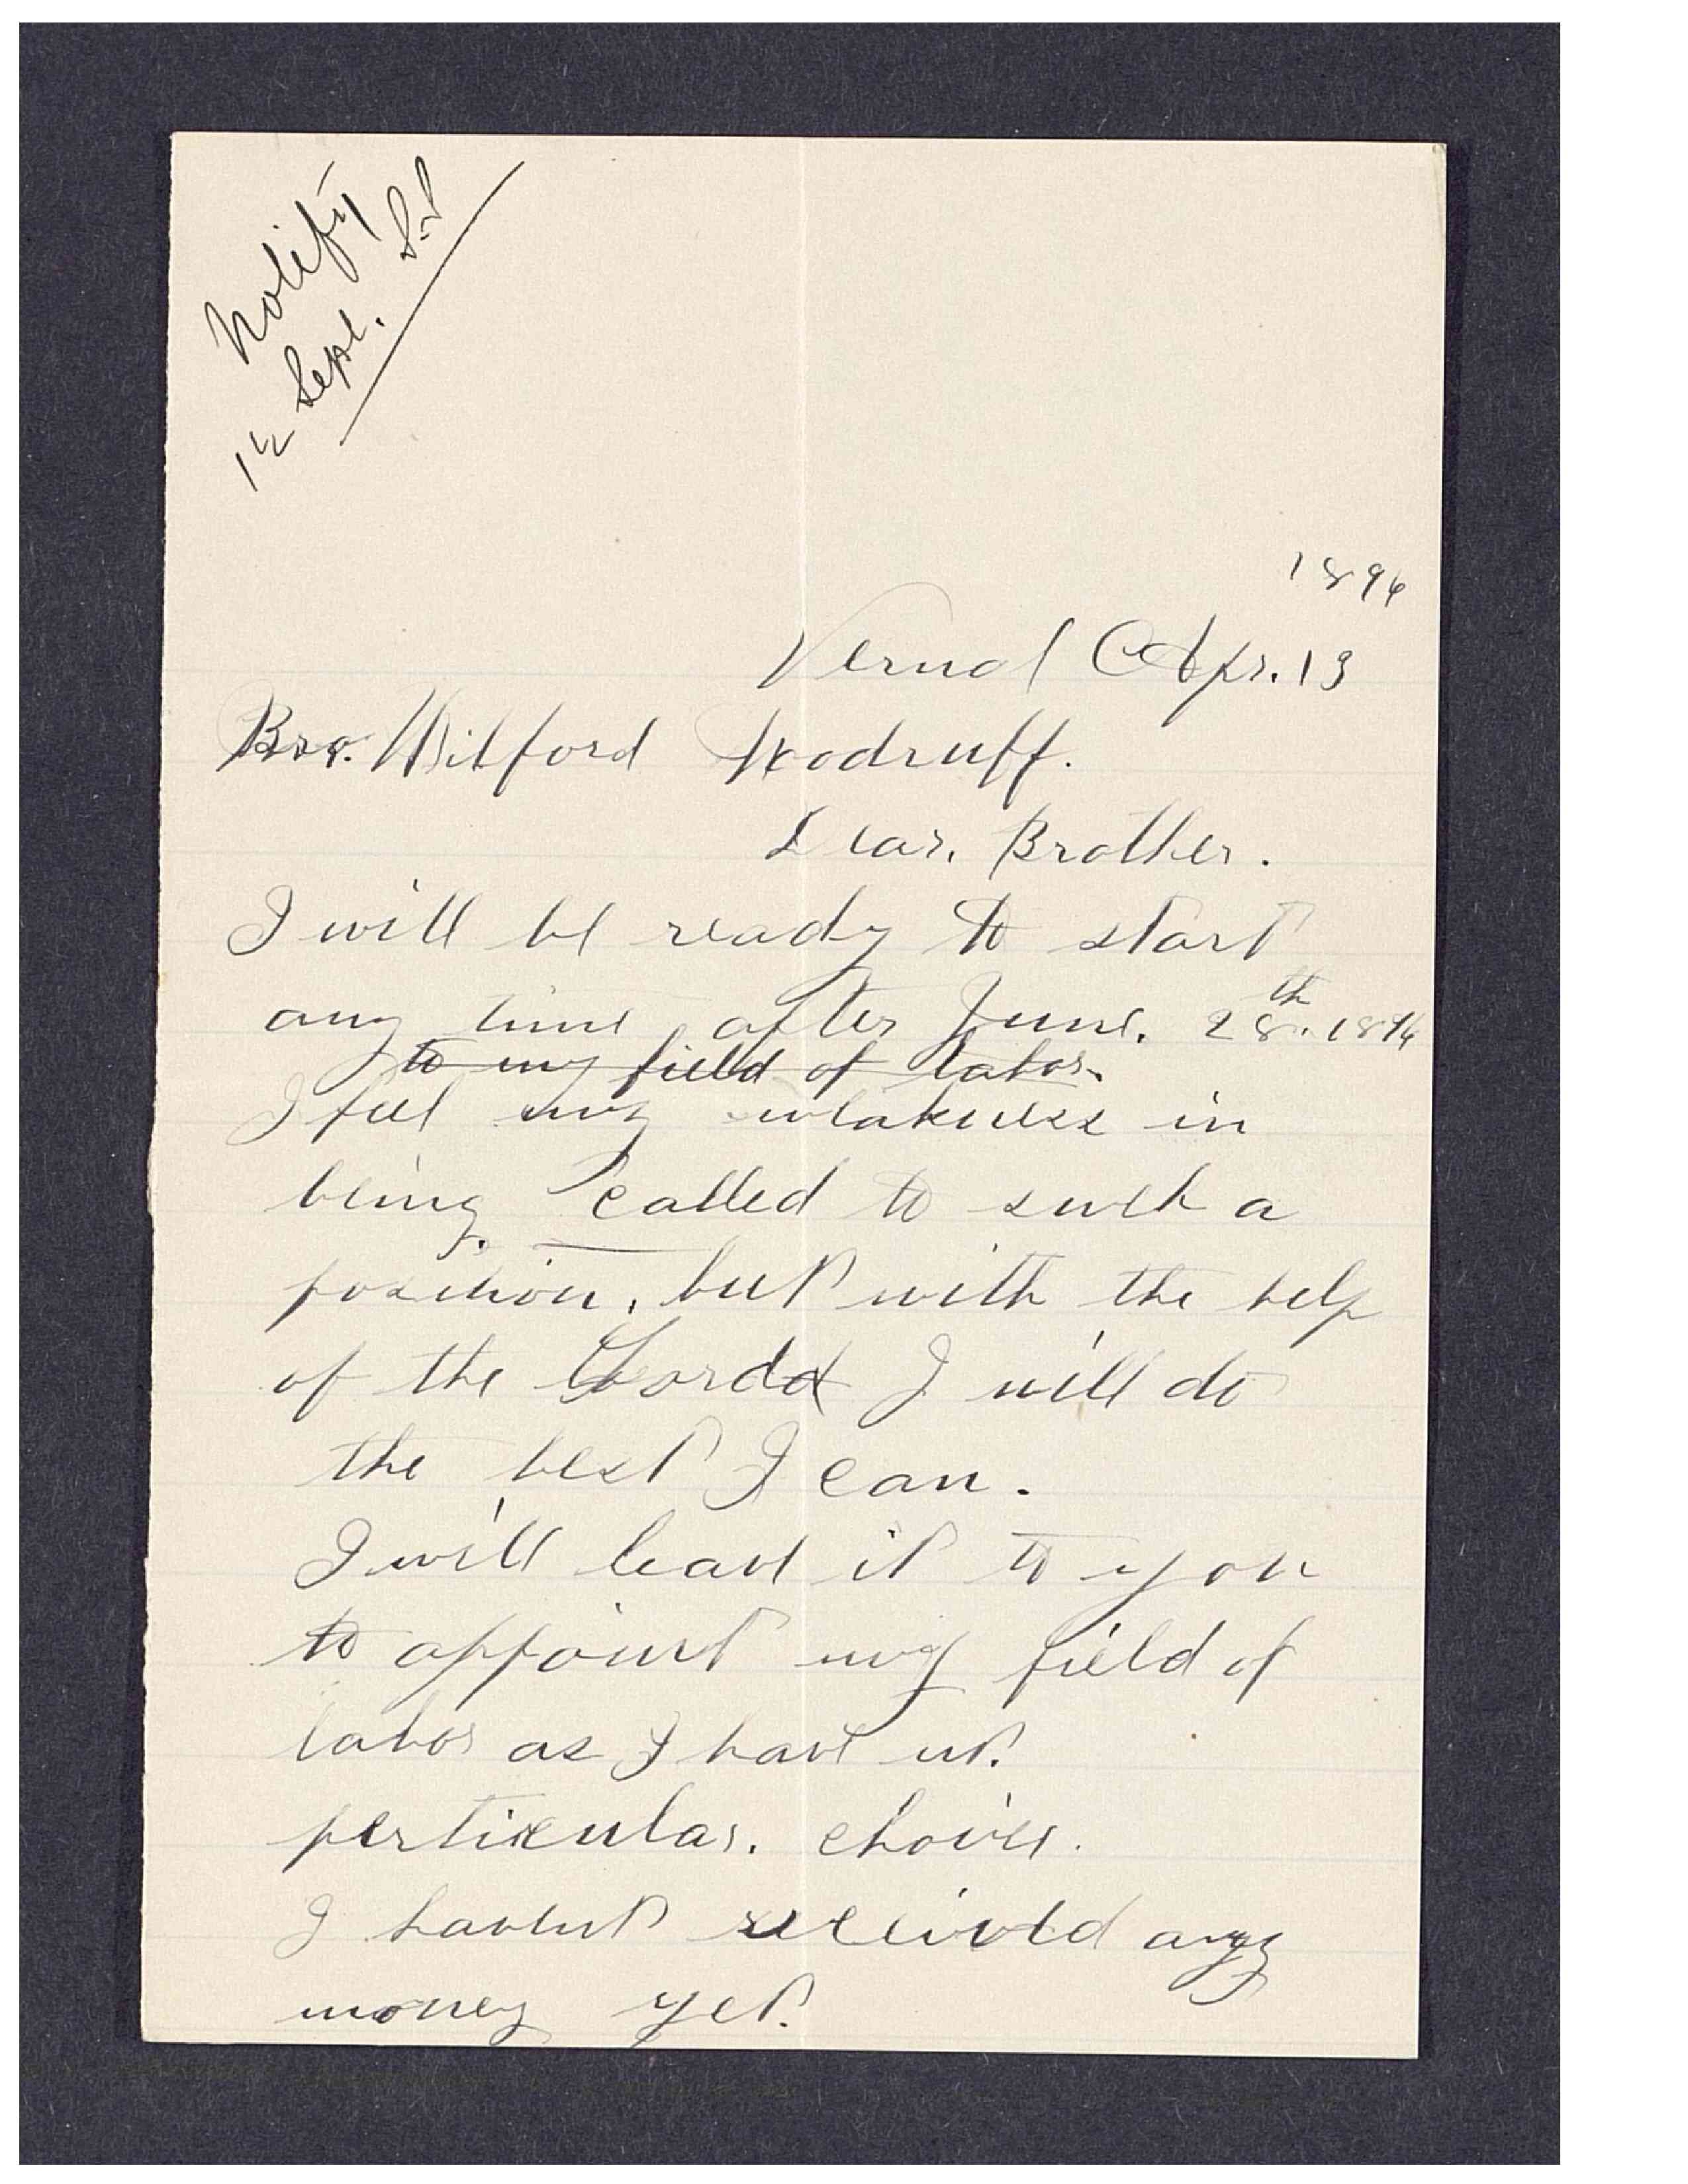 Notify
1/2 Sept.
1896
Vernal Apr. 13
Bro. Wilford Wodruff.
Dear. Brother.
I will be ready to start
any time after June. 28th. 1896
to my field of labor.
I feel my weakness in
being. called to such a
position, but with the help
of the Lord I will do
the best I can.
I will leave it to you
to appoint my field of
labor as I have no.
perticular. choice.
I havent received any
money yet.